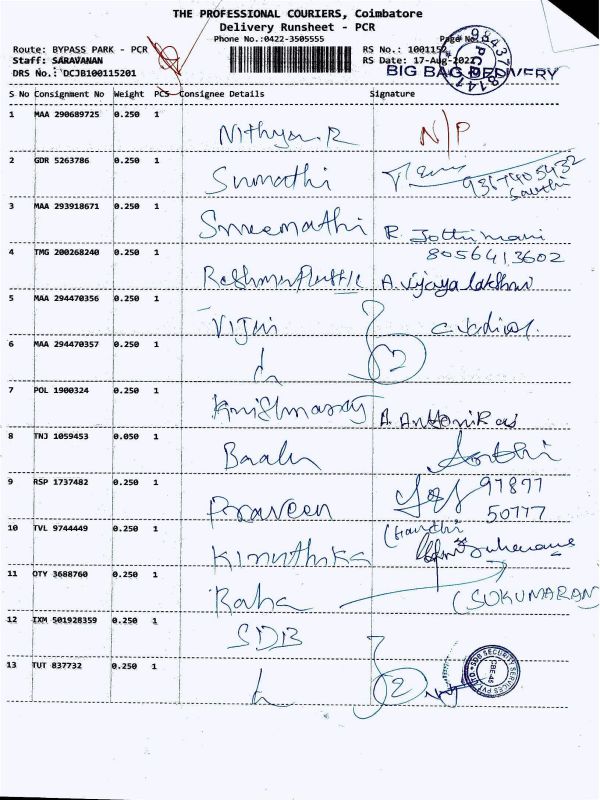 THE PROFESSIONAL COURIERS, Coimbatore
Delivery Runsheet - PCR
Phone No.:0422-3505555
Page No.
Route: BYPASS PARK - PCR
RS No.: 1001152
Staff: SARAVANAN
RS Date: 17-Aug-2022
DRS No.: DCJB100115201
BIG BAG DELIVERY
S No Consignment No Weight PCS Consignee Details Signature
1 MAA 290689725 0.250 1 Nithya.R N/P
2 GDR 5263786 0.250 1 Sumathi 9367405432
3 MAA 293918671 0.250 1 R. Jothimani
8056413602
4 TMG 200268240 0.250 1 A. Vijayalakshmi
5 MAA 294470356 0.250 1
6 MAA 294470357 0.250 1 2
7 POL 1900324 0.250 1 A. Antoni
8 TNJ 1059453 0.050 1
9 RSP 1737482 0.250 1 Praveen 97877
50777
10 TVL 9744449 0.250 1 Kiruthika
11 OTY 3688760 0.250 1 (SUKUMARAN)
12 IXM 501928359 0.250 1 SDB
13 TUT 837732 0.250 1 2
SDB SECURITY SERVICES PVT LTD
CBE-45